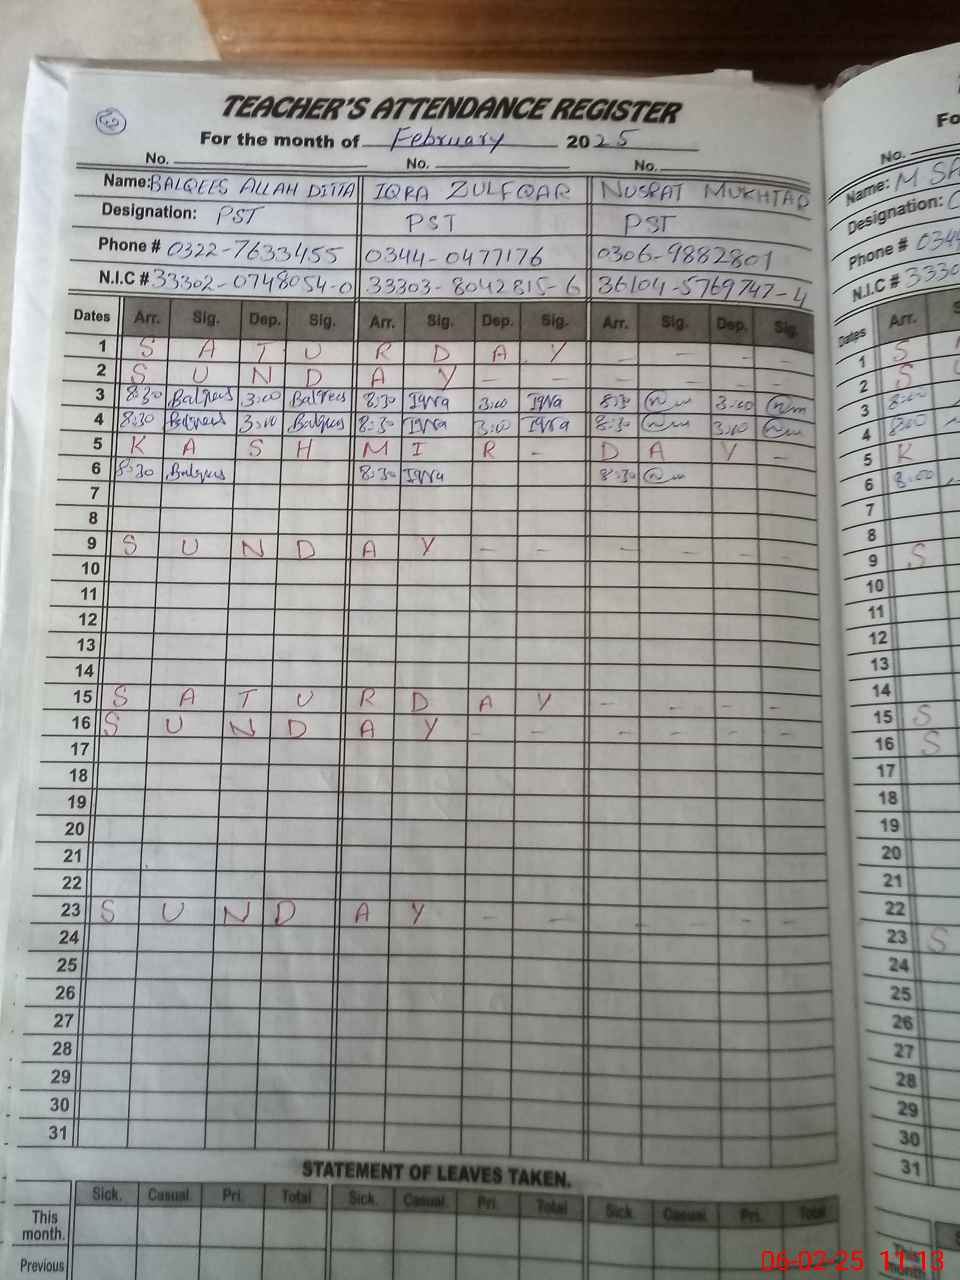 42
TEACHER'S ATTENDANCE REGISTER
For the month of February 2025
No. No. No.
Name: BALQEES ALLAH DITTA IQRA ZULFQAR NUSRAT MUKHTAR
Designation: PST PST PST
Phone # 0322-7633455 0344-0477176 0306-9882801
N.I.C # 33302-0748054-0 33303-8042815-6 36104-5769747-4
Dates Arr. Sig. Dep. Sig. Arr. Sig. Dep. Sig. Arr. Sig. Dep. Sig.
1 S A T U R D A Y - - - -
2 S U N D A Y - - - - - -
3 8:30 Balqees 3:00 Balqees 8:30 Iqra 3:00 Iqra 8:30 3:00
4 8:30 Balqees 3:00 Balqees 8:30 Iqra 3:00 Iqra 8:30 3:00
5 K A S H M I R - D A Y -
6 8:30 Balqees 8:30 Iqra 8:30
7
8
9 S U N D A Y - - - - - -
10
11
12
13
14
15 S A T U R D A Y - - - -
16 S U N D A Y - - - - - -
17
18
19
20
21
22
23 S U N D A Y - - - - - -
24
25
26
27
28
29
30
31
STATEMENT OF LEAVES TAKEN.
Sick. Casual. Pri. Total Sick. Casual. Pri. Total Sick. Casual. Pri. Total
This month.
Previous
Fo
No.
Name: M
Designation:
Phone # 0344
N.I.C # 3330
Dates Arr.
1 S
2 S
3 8:00
4 8:00
5 K
6 8:00
7
8
9 S
10
11
12
13
14
15 S
16 S
17
18
19
20
21
22
23 S
24
25
26
27
28
29
30
31
This month
06-02-25 11:13